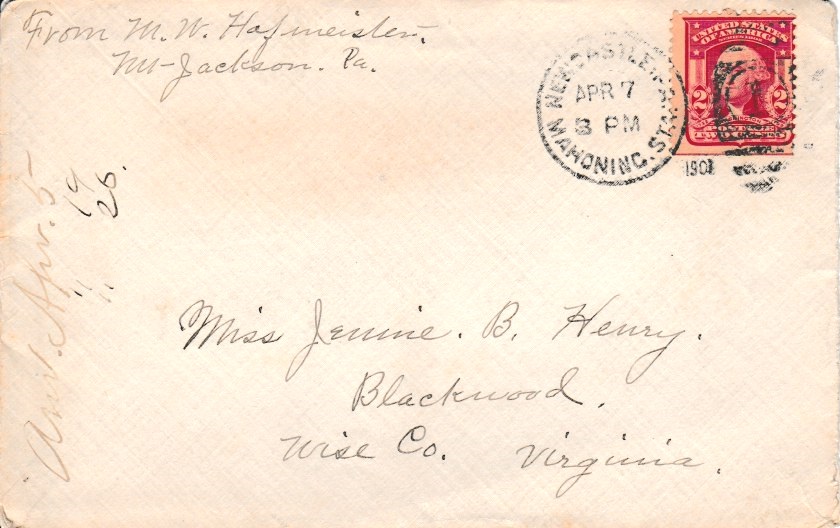 From M. W. Hofmeister.
Mt-Jackson. Pa.
NEW CASTLE, PA.
APR 7
8 PM
MAHONING. STA.
190
UNITED STATES
OF AMERICA
2 2
Apr. 5
19
26.
" "
Miss Jennie. B. Henry.
Blackwood.
Wise Co. Virginia.